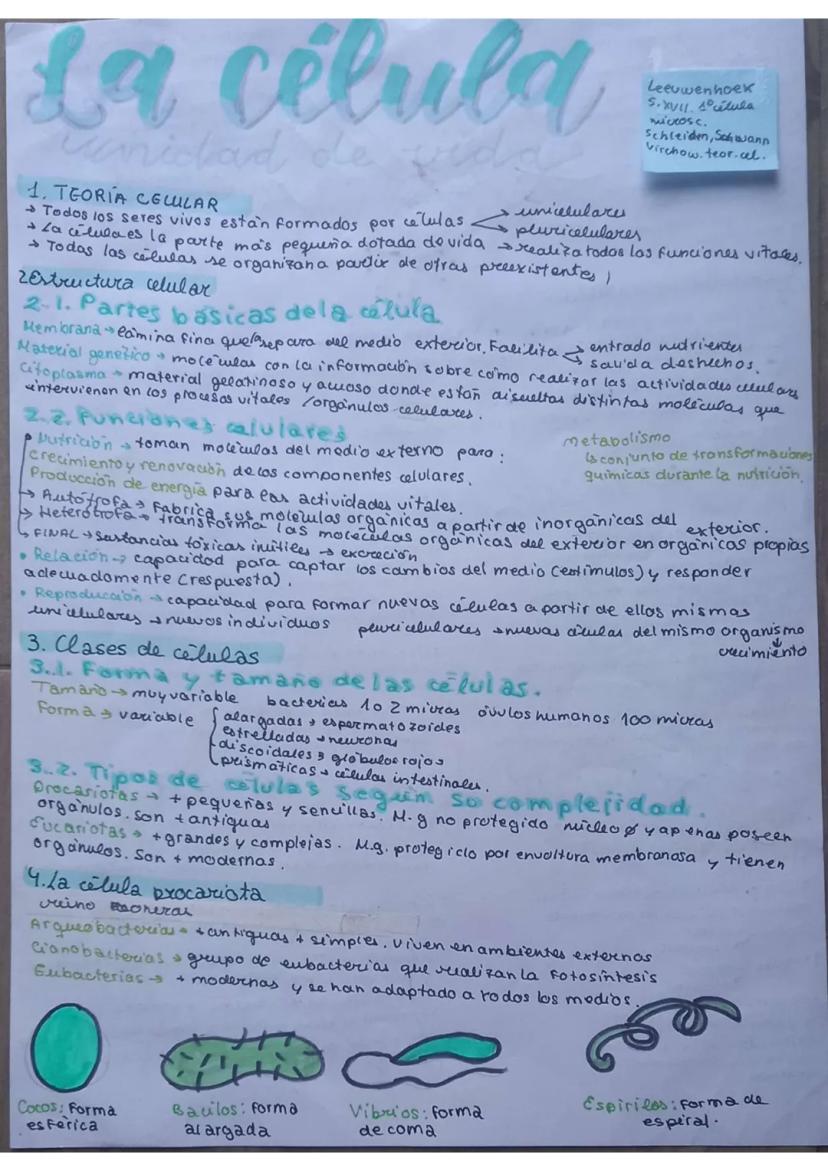 La célula
unidad de vida
Leeuwenhoek
S. XVII. 1º célula
microsc.
Schleiden, Schwann
Virchow. teor. cel.
1. TEORÍA CELULAR
→ Todos los seres vivos están formados por células → unicelulares
→ pluricelulares
→ La célula es la parte más pequeña dotada de vida → realiza todos las funciones vitales.
→ Todas las células se organizan a partir de otras preexistentes
2 Estructura celular
2.1. Partes básicas de la célula
Membrana → lámina fina que la separa del medio exterior. Facilita → entrado nutrientes
→ salida deshechos.
Material genético → moléculas con la información sobre como realizar las actividades celulares
Citoplasma → material gelatinoso y acuoso donde están disueltas distintas moléculas que
intervienen en los procesos vitales / orgánulos celulares.
2.2. Funciones celulares
• Nutrición → toman moléculas del medio externo para:
Crecimiento y renovación de los componentes celulares.
Producción de energía para las actividades vitales.
metabolismo
↳ conjunto de transformaciones
químicas durante la nutrición.
→ Autótrofa → Fabrica sus moléculas orgánicas a partir de inorgánicas del exterior.
→ Heterótrofa → transforma las moléculas orgánicas del exterior en orgánicas propias
↳ FINAL → sustancias tóxicas inútiles → excreción
• Relación → capacidad para captar los cambios del medio (estímulos) y responder
adecuadamente (respuesta).
• Reproducción → capacidad para formar nuevas células a partir de ellos mismas
unicelulares → nuevos individuos pluricelulares → nuevas células del mismo organismo
↓
crecimiento
3. Clases de células
3.1. Forma y tamaño de las células.
Tamaño → muy variable bacterias 1 o 2 micras óvulos humanos 100 micras
Forma → variable { alargadas → espermatozoides
estrelladas → neuronas
discoidales → glóbulos rojos
prismáticas → células intestinales.
3.2. Tipos de células según so complejidad.
Procariotas → + pequeñas y sencillas. M.g no protegido núcleo ø y apenas poseen
orgánulos. Son + antiguas
Eucariotas → + grandes y complejas. M.g. protegido por envoltura membranosa y tienen
orgánulos. Son + modernas.
4. La célula procariota
reino moneras
Arqueobacterias → + antiguas + simples. Viven en ambientes externos
Cianobacterias → grupo de eubacterias que realizan la fotosíntesis
Eubacterias → + modernas y se han adaptado a todos los medios.
Cocos: Forma
esférica
Bacilos: forma
alargada
Vibrios: forma
de coma
Espirilos: forma de
espiral.